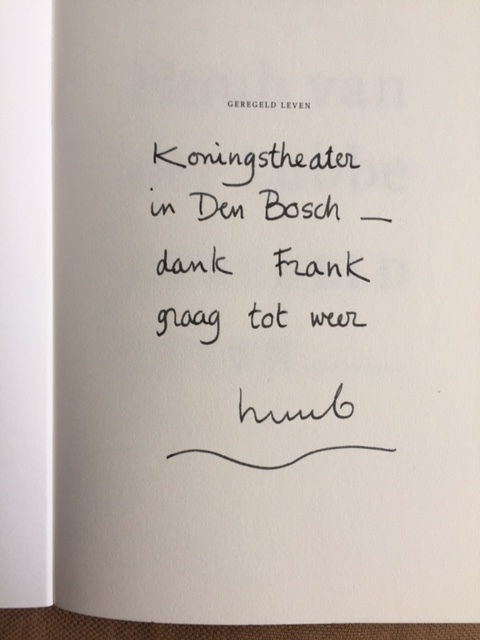 GEREGELD LEVEN
Koningstheater
in Den Bosch —
dank Frank
graag tot weer
huub